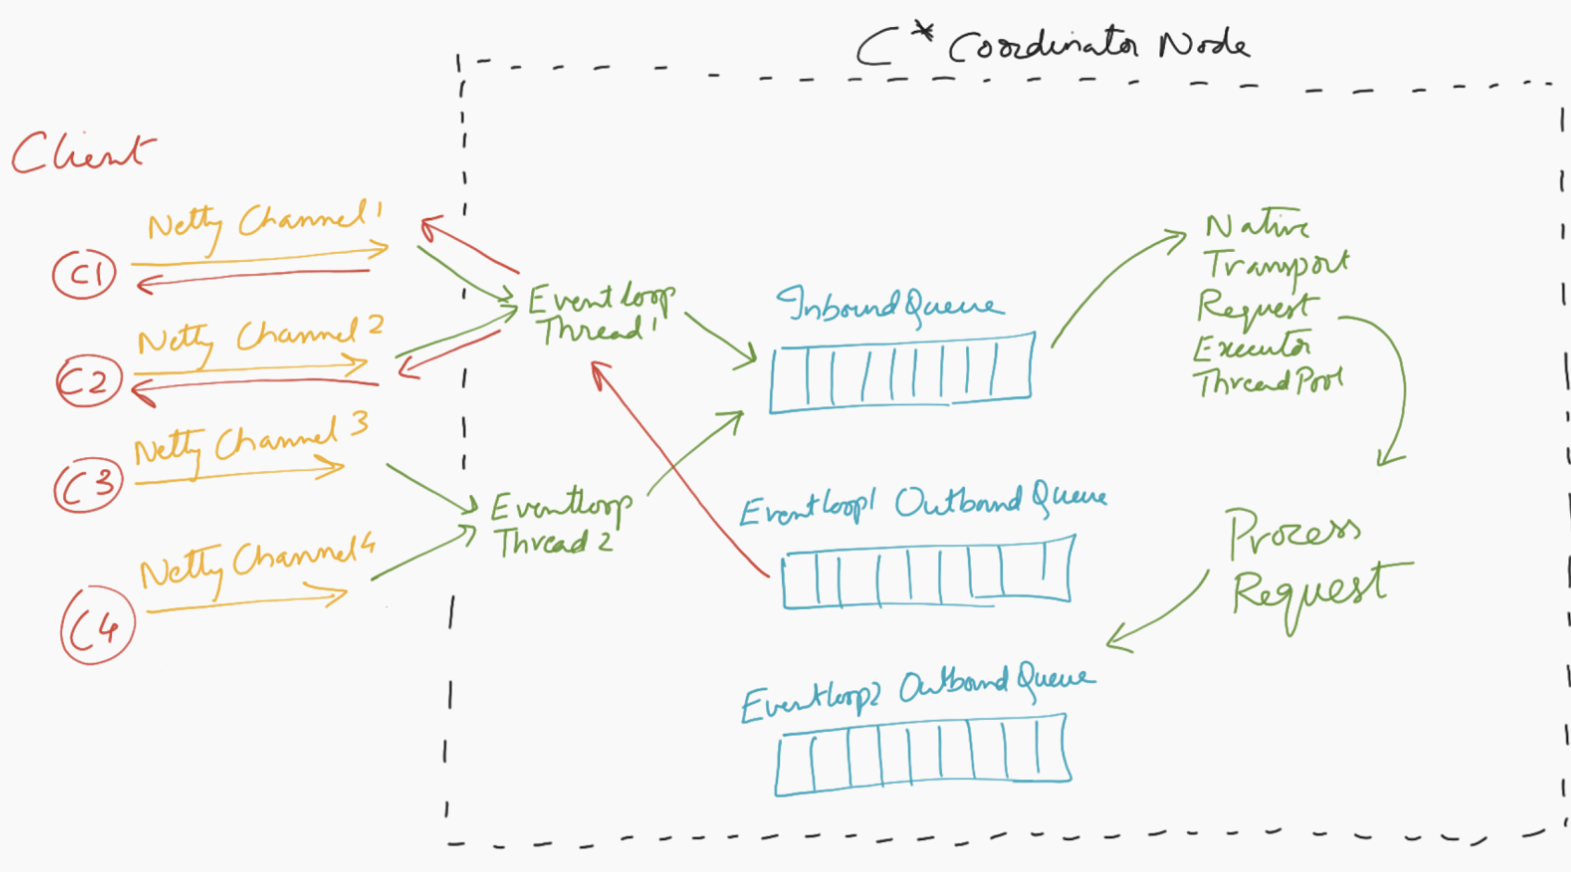 C* Coordinator Node
Client
C1
Netty Channel 1
C2
Netty Channel 2
C3
Netty Channel 3
C4
Netty Channel 4
Eventloop
Thread 1
Eventloop
Thread 2
Inbound Queue
Eventloop1 Outbound Queue
Eventloop2 Outbound Queue
Native
Transport
Request
Executor
ThreadPool
Process
Request